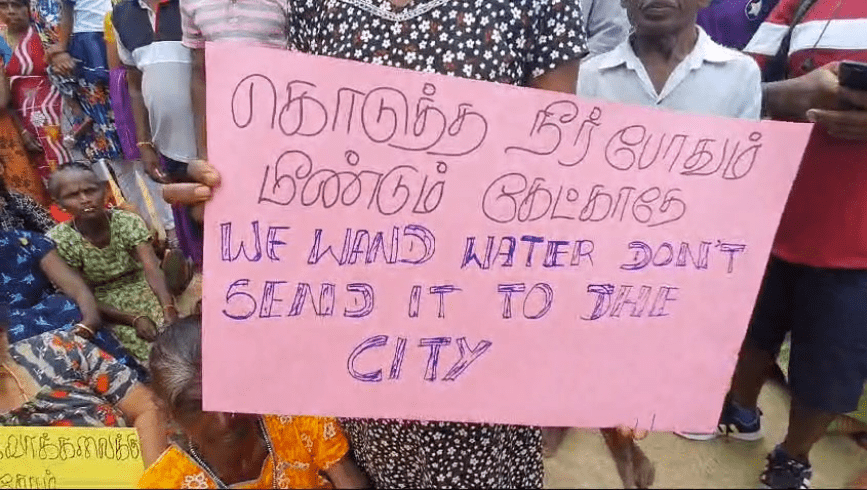 கொடுத்த நீர் போதும்
மீண்டும் கேட்காதே
WE WAND WATER DON'T
SEND IT TO DHE
CITY